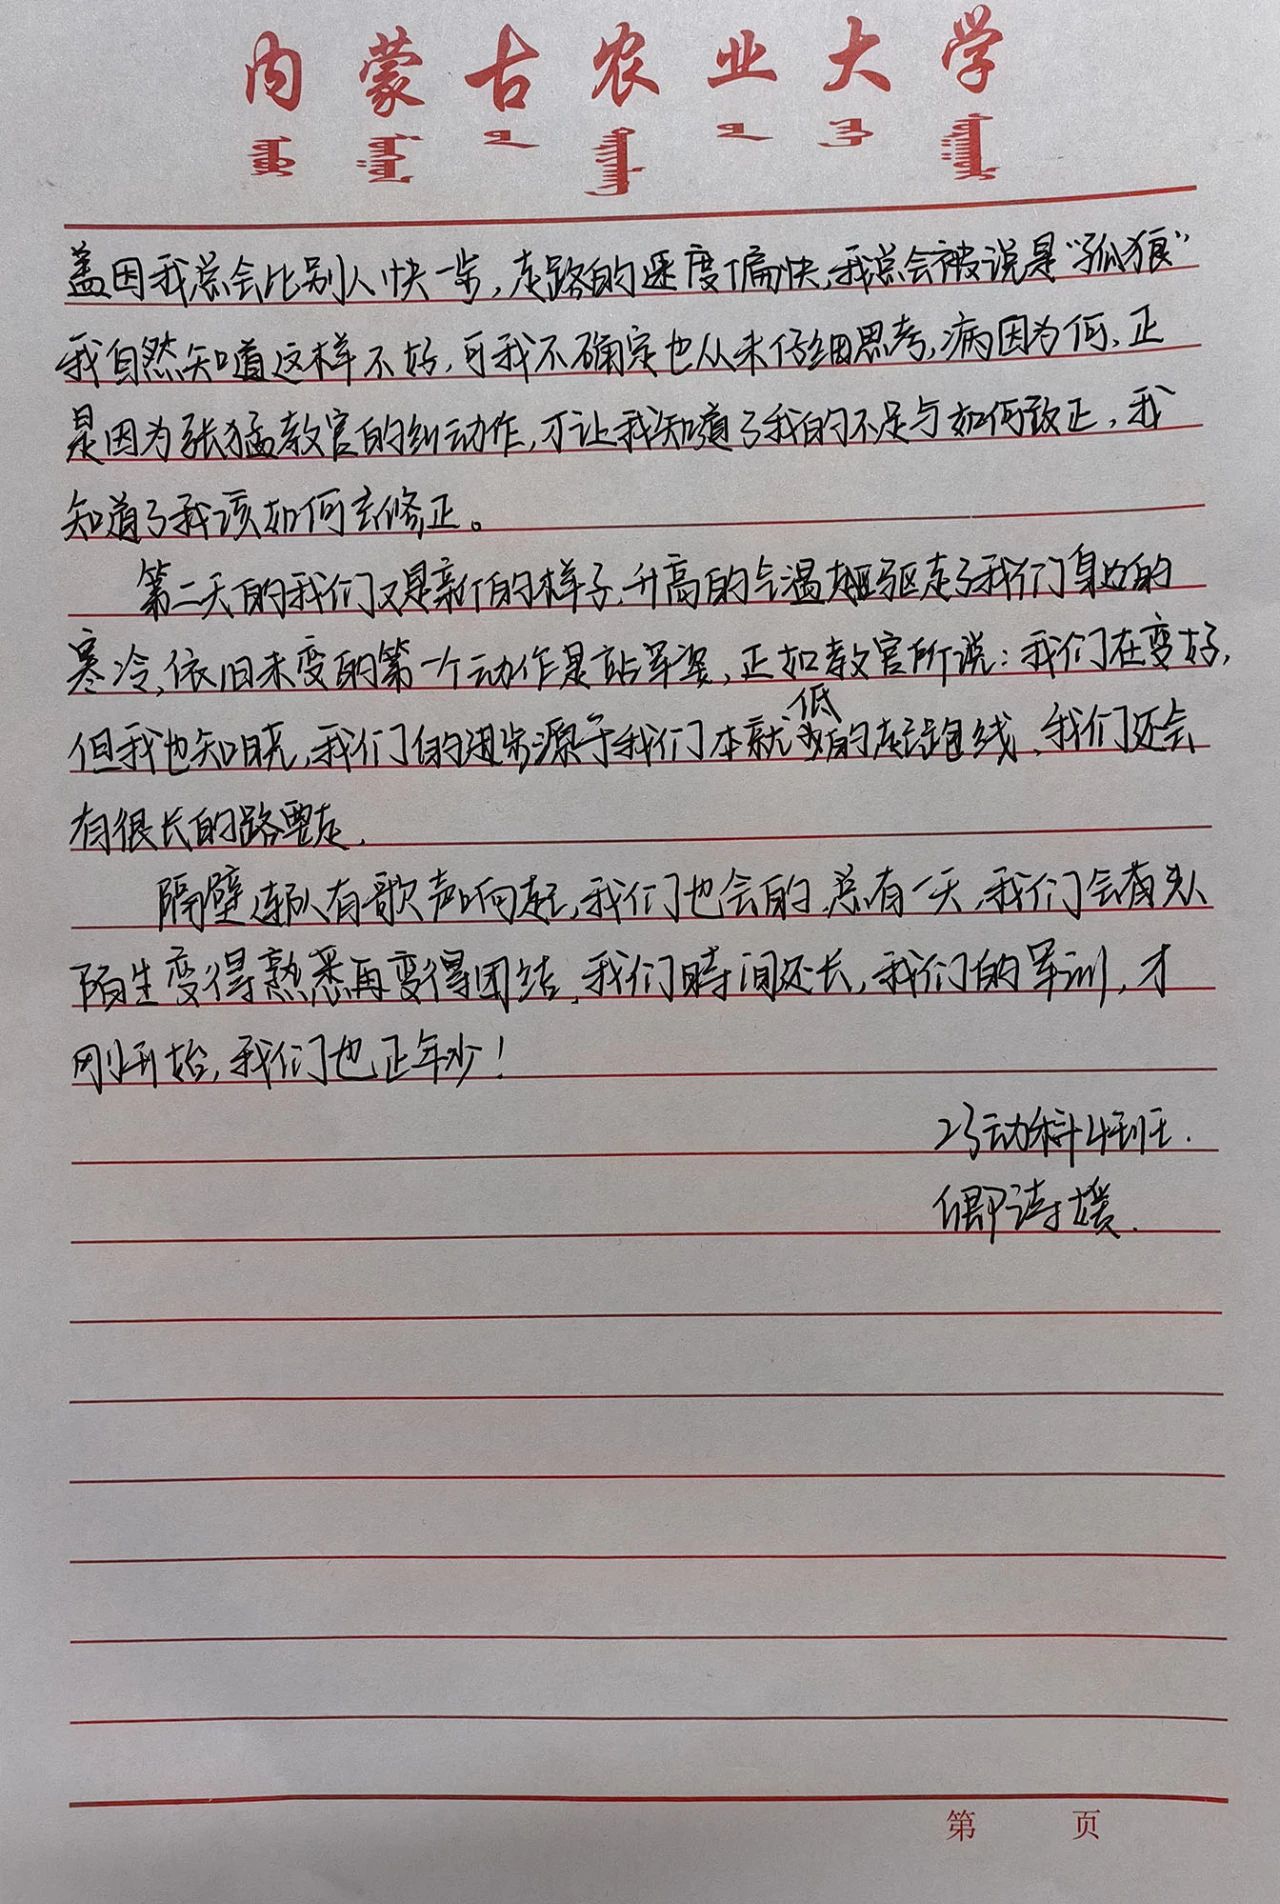 内蒙古农业大学
盖因我总会比别人快一步,走路的速度偏快,我总会被说是“孤狼”
我自然知道这样不好,可我不确定也从未仔细思考,病因为何,正
是因为张猛教官的纠动作,才让我知道了我的不足与如何改正,我
知道了我该如何去修正。
第二天的我们又是新的样子,升高的气温驱走了我们身边的
寒冷,依旧未变的第一个动作是站军姿,正如教官所说:我们在变好,
但我也知晓,我们的进步源于我们本就低的起跑线,我们还会
有很长的路要走.
隔壁连队有歌声响起,我们也会的,总有一天,我们会有从
陌生变得熟悉再变得团结,我们时间还长,我们的军训,才
刚开始,我们也正年少!
23动科4班.
卿诗媛.
第 页